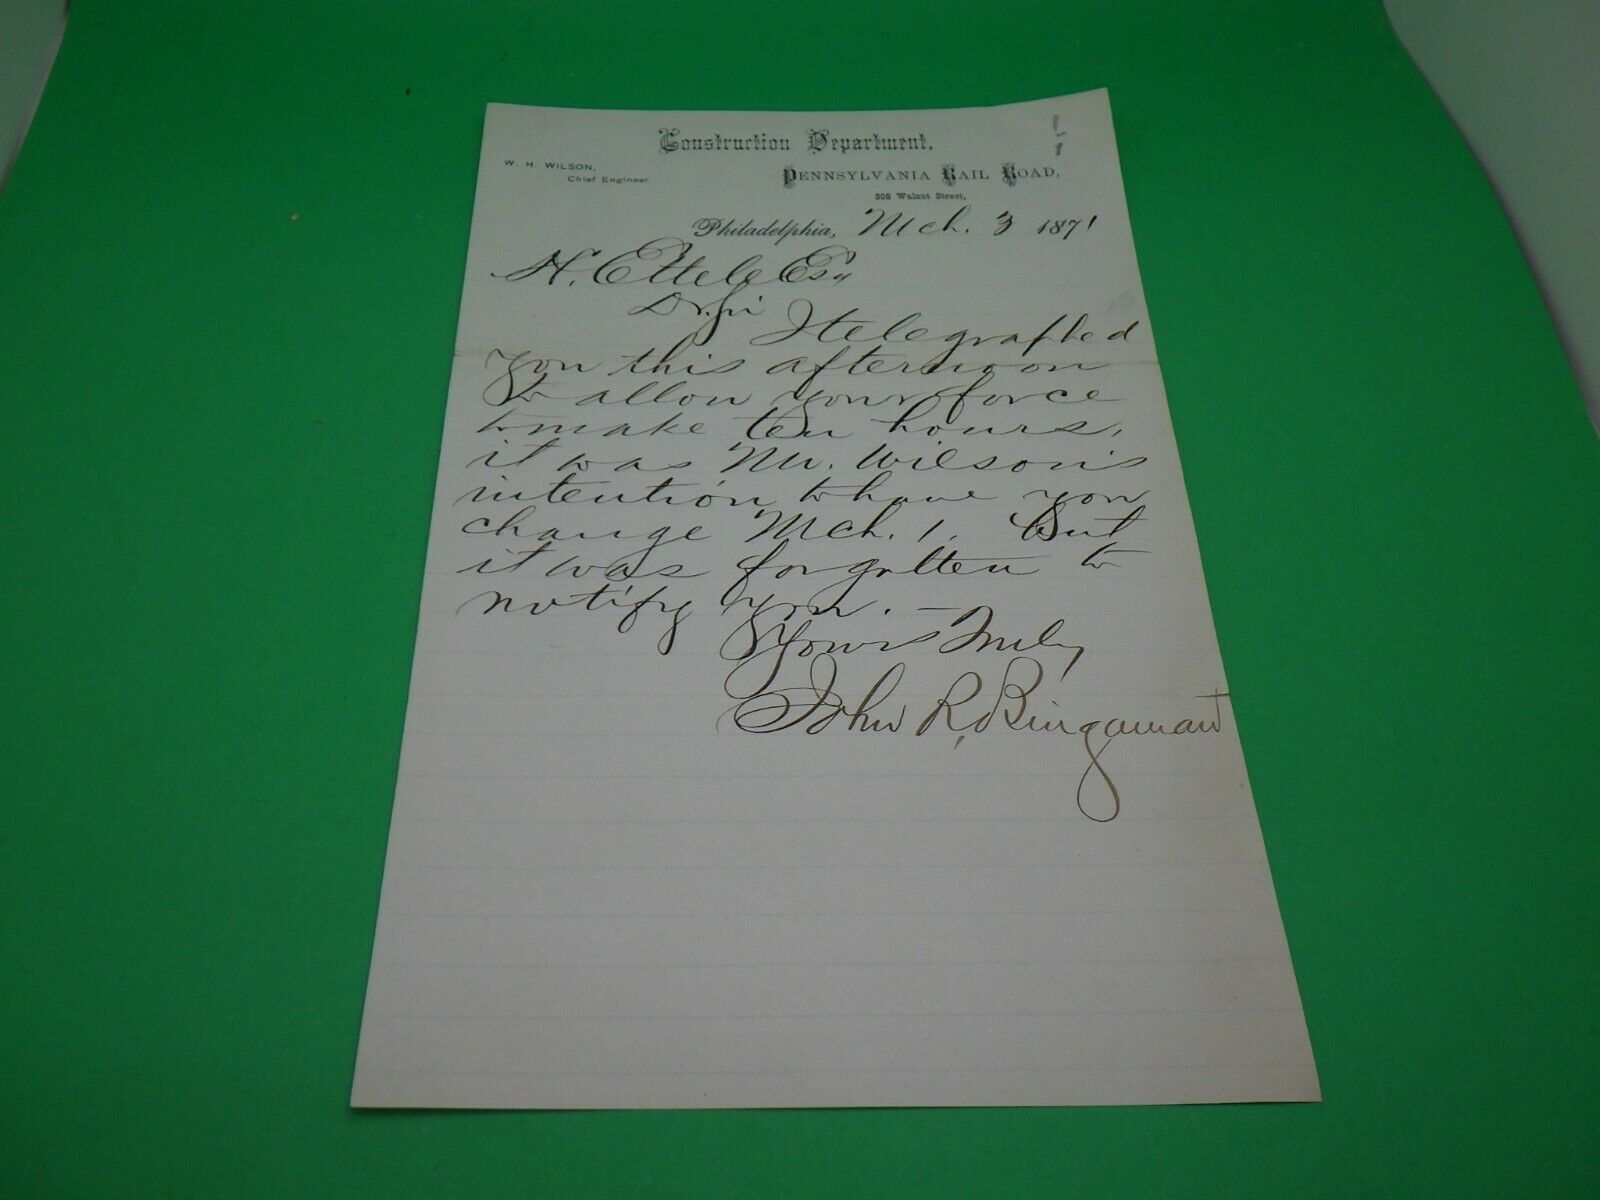 Construction Department,
W. H. WILSON,
Chief Engineer.
PENNSYLVANIA RAIL ROAD,
308 Walnut Street,
Philadelphia, Mch. 3 1871
H. Ettele Esq
Dr. Sir
I telegraphed
you this afternoon
to allow your force
to make ten hours,
it was Mr. Wilson's
intention to have you
change Mch. 1. But
it was forgotten to
notify you. –
Yours Truly
John R. Bingaman